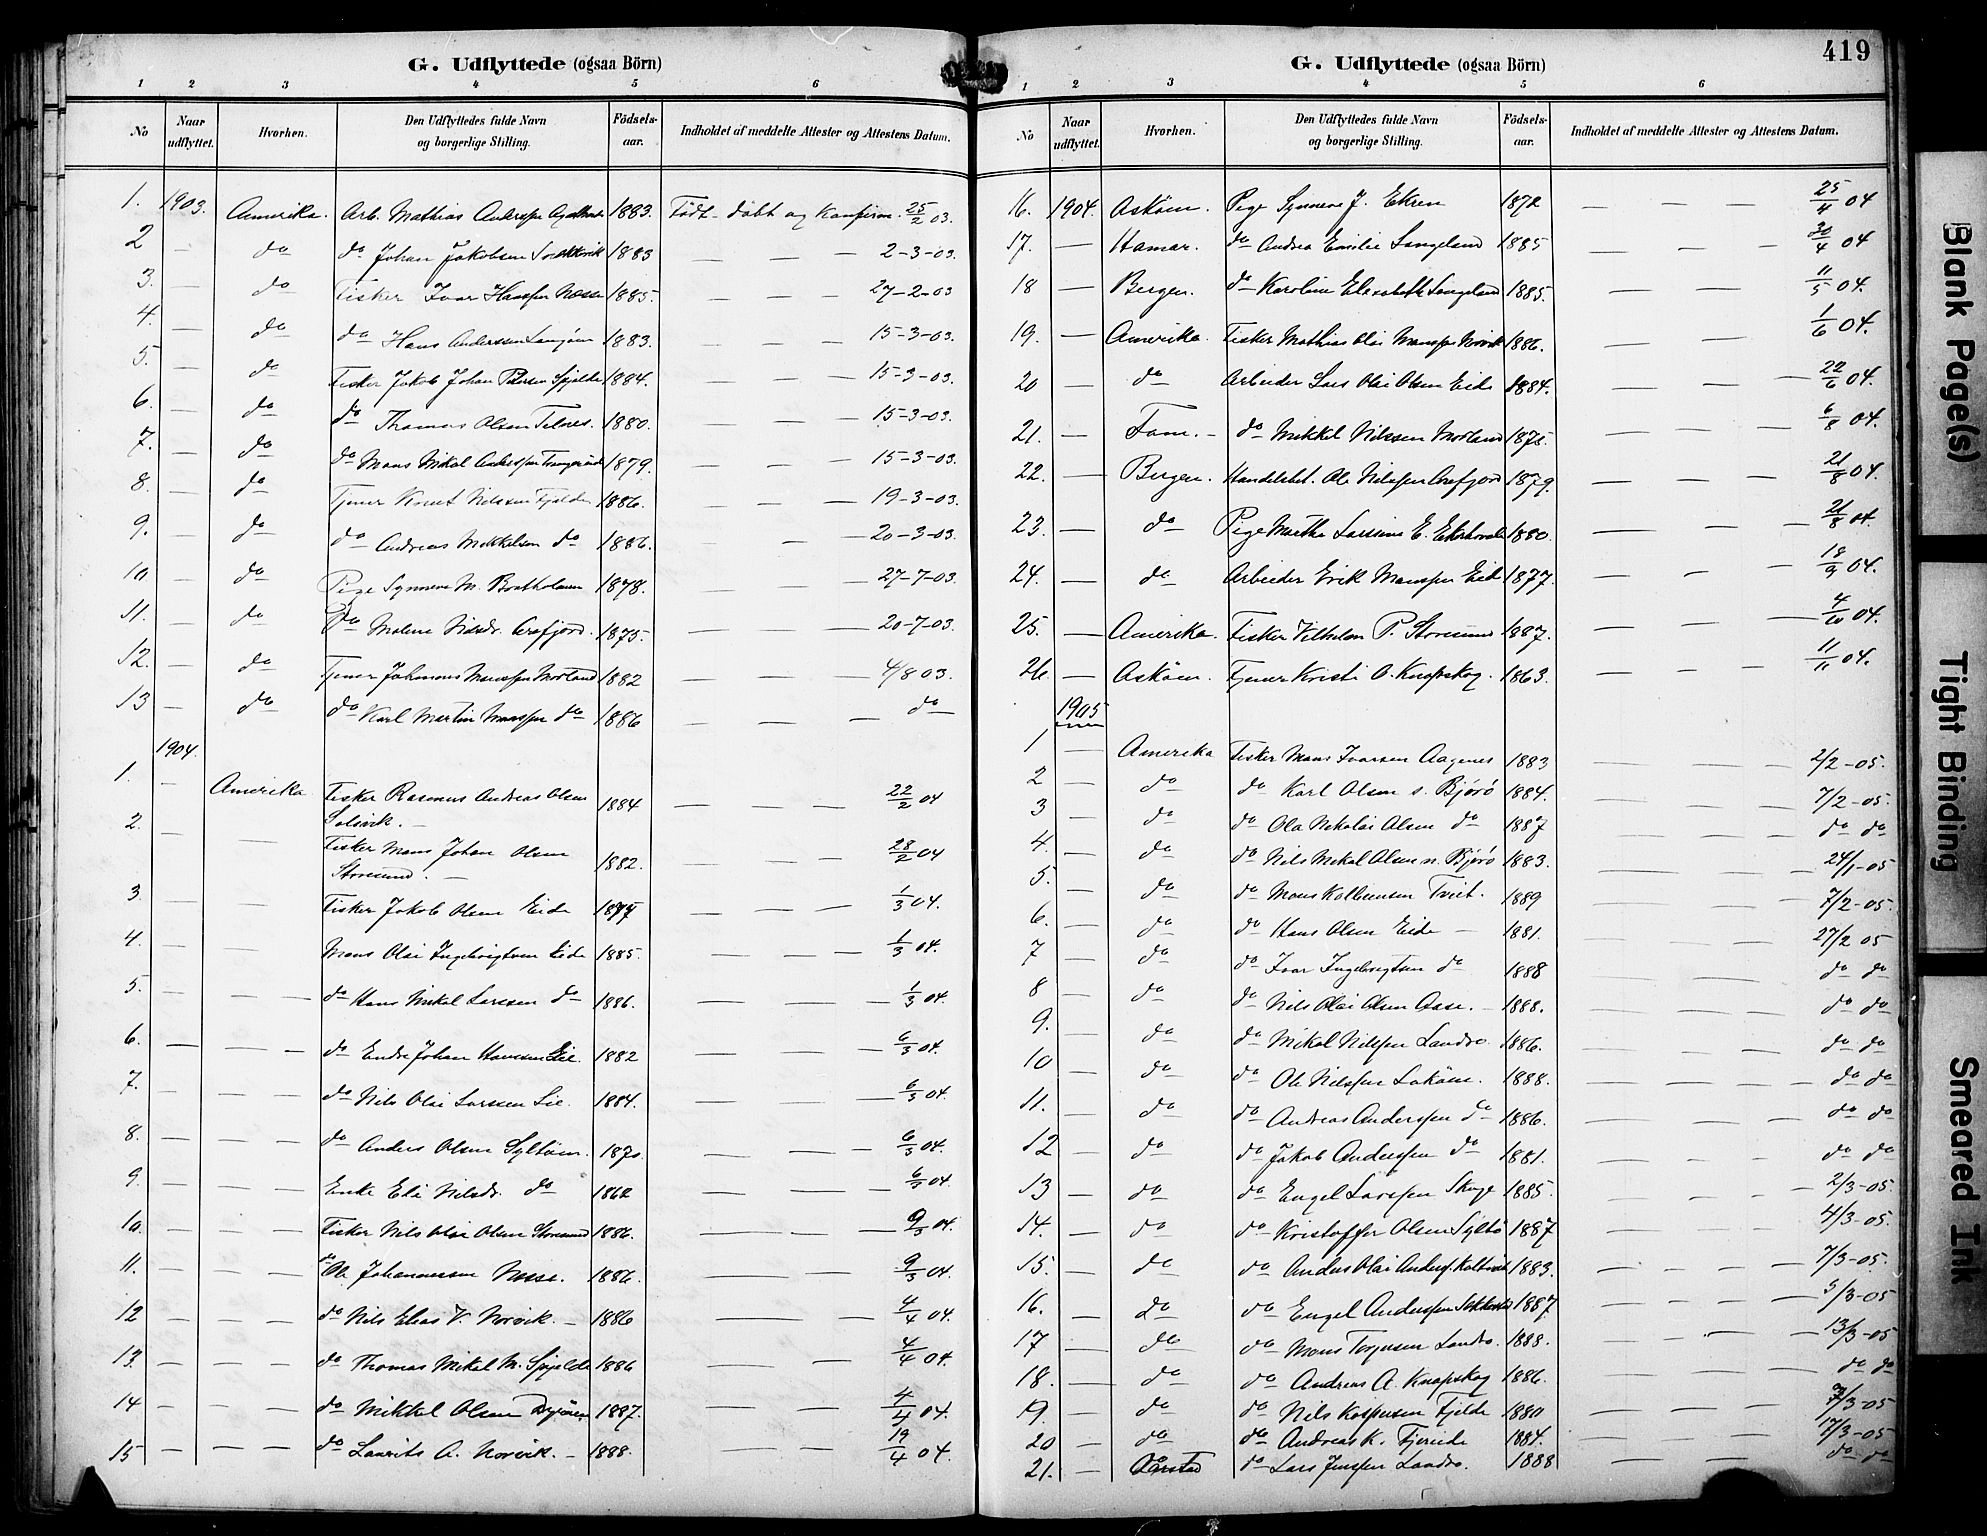 419
G. Udflyttede (ogsaa Börn)
1 2 3 4 5 6
No Naar udflyttet. Hvorhen. Den Udflyttedes fulde Navn og borgerlige Stilling. Födsels-aar. Indholdet af meddelte Attester og Attestens Datum.
1. 1903. Amerika. Arb. Mathias 1883. Födt - döbt og Konfirm. 25/2 03.
2 — do do Johan Jakobsen 1883 — — — 2-3-03.
3. — do Fisker Ivar Hanssen Nesse 1885. — — — 27-2-03
4. — do do Hans Anderssen 1883. — — — 15-3-03.
5. — do Fisker Jakob Johan Petersen Spjelde 1884. — — — 15-3-03.
6. — do do Thomas Olsen Telnes. 1880. — — — 15-3-03.
7. — do do Mons Mikal Anderssen 1879. — — — 15-3-03.
8. — do Tjener Knut Nilssen Fjelde 1886. — — — 19-3-03.
9. — do do Andreas Mikkelsen do 1886. — — — 20-3-03.
10 — do Pige Synneve M. 1878. — — 27-7-03.
11. — do do Malene Nilsdr. 1875. — — — 20-7-03.
12. — do Tjener Johannes Monssen Morland 1882 — — — 4/8 03.
13 — do do Karl Martin Monssen do 1886 — — — do
1904.
1. — Amerika Fisker Rasmus Andreas Olsen
Solsvik. — 1884 — — — 22/2 04
2. — — Fisker Mons Johan Olsen
Storesund. — 1882. — — — 28/2 04
3. — — — Fisker Jakob Olsen Eide — — — 1/3 04.
4. — — — Mons Olai Ingebrigtsen Eide 1885. — — — 1/3 04.
5. — — — do Hans Mikal Larssen do 1886. — — — 1/3 04.
6. — — — do Endre Johan Hanssen Lie. 1882 — — — 6/3 04.
7. — — — do Nils Olai Larssen Lie. 1884. — — — 6/3 04.
8. — — — do Anders Olsen Syltöen. 1870. — — — 6/3 04.
9. — — — Enke Eli Nilsdr. do 1862 — — — 6/3 04.
10. — — — Fisker Nils Olai Olsen Storesund 1886. — — — 9/3 04.
11. — — — do Ole Johannessen Nesse. 1886. — — 9/3 04.
12 — — — do Nils Elias V. Norvik. — 1886 — — 4/4 04.
13. — — — do Thomas Mikal M. Spjelde 1886 — — 4/4 04.
14 — — — do Mikkel Olsen Dyröen 1887. — — 4/4 04.
15 — — — do Laurits A. Norvik. — 1888. — — — 19/4 04.
G. Udflyttede (ogsaa Börn)
1 2 3 4 5 6
No Naar udflyttet. Hvorhen. Den Udflyttedes fulde Navn og borgerlige Stilling. Födsels-aar. Indholdet af meddelte Attester og Attestens Datum.
16. 1904. Asköen. Pige Synneve J. Ekren 1872 — — — 25/4 04
17. — Hamar. do Andrea Emilie Langeland 1885 — — — 30/4 04
18 — Bergen. do Karoline Elisabeth Langeland 1885. — — — 11/5 04.
19. — Amerika. Fisker Mathias Olai Monssen Norvik 1886. — — — 1/6 04.
20 — do Arbeider Lars Olai Olsen Eide 1884. — — — 22/6 04.
21. — Fane. — do Mikkel Nilssen Morland 1875. — — — 6/8 04.
22. — Bergen. Ole Nilssen 1879. — — — 21/8 04.
23. — do Pige Marthe Larssine E. 1880. — — — 21/8 04.
24. — do Arbeider Erik Monssen Eide 1877. — — — 18/9 04.
25. — Amerika. Fisker Vilhelm P. Storesund 1887. — — — 4/10 04.
26. — Asköen. Tjener Kristi O. Knapskog. 1863. — — — 11/11 04.
1905
1 — Amerika Fisker Mons Ivarsen Aagenes 1883 — — — 2/2-05.
2 — do do Karl Olsen s. Björö 1884. — — — 7/2-05.
3 — do do Ola Nikolai Olsen do 1887 — — — do do
4. — do do Nils Mikal Olsen n. Björö 1883. — — — 24/1-05
5. — do do Mons Kolbeinsen Tveit. 1889 — — — 7/2-05.
6. — do do Hans Olsen Eide — 1881. — — — 27/2 05
7 — do do Ivar Ingebrigtsen do 1888 — — — do do
8 — do do Nils Olai Olsen Aase. — 1888. — — — do do
9. — do do Mikal Nilssen Landro. 1886. — — — do do
10 — do do Ole Nilssen Loköen. 1888. — — — do do
11. — do do Andreas Anderssen do 1886. — — — do do
12 — do do Jakob Anderssen do 1881. — — — do do
13 — do do Engel Larssen Skoge 1885. — — — 2/3-05.
14. — do do Kristoffer Olsen Syltö 1887 — — — 4/3-05.
15. — do do Anders Olai Anderss. 1883. — — — 7/3-05.
16. — do do Engel Anderssen 1887. — — — 5/3-05
17 — do do Mons Torgersen Landro. 1888. — — — 13/3-05
18. — do do Andreas A. Knapskog 1886. — — — do do
19. — do do Nils Kaspersen Fjelde 1880 — — — 7/3-05
20 — do do Andreas K. 1884. — — — 17/3-05
21. — Aarstad do Lars Jenssen Landro. 1888 — — — do do
Blank Page(s)
Tight Binding
Smeared Ink